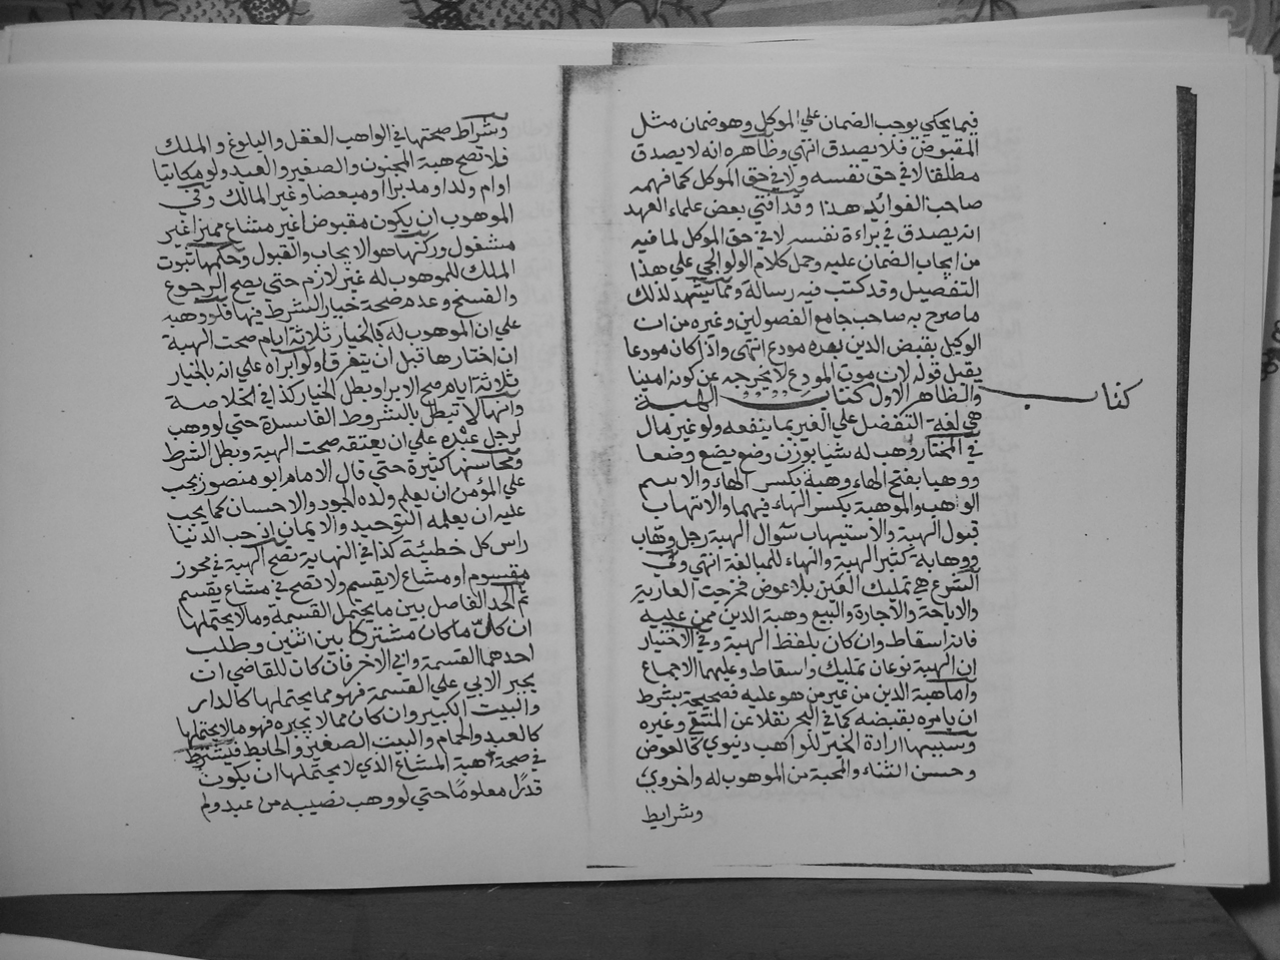 فيما يحكي يوجب الضمان علي الموكل وهو ضمان مثل
المقبوض فلا يصدق انتهي وظاهره انه لا يصدق
مطلقا لا في حق نفسه ولا في حق الموكل كما فهمه
صاحب الفوائد هذا وقد افتي بعض علماء العهد
انه يصدق في براءة نفسه لا في حق الموكل لما فيه
من ايجاب الضمان عليه وحمل كلام الولوالجي علي هذا
التفصيل وقد كتب فيه رسالة ومما يشهد لذلك
ما صرح به صاحب جامع الفصولين وغيره من ان
الوكيل بقبض الدين بعده مودع انتهي واذا كان مودعا
يقبل قوله لان موت المودع لا يخرجه عن كونه امينا
والظاهر الاول كتاب الهبة
كتاب
هي لغة التفضل علي الغير بما ينفعه ولو غير مال
في المختار وهب له شيا بوزن وضع يضع وضعا
ووهبا بفتح الهاء وهبة بكسر الهاء والاسم
الواهب والموهبة بكسر الهاء فيهما والاتهاب
قبول الهبة والاستيهاب سوال الهبة رجل وهاب
ووهابة كثير الهبة والهاء للمبالغة انتهي وفي
الشرع هي تمليك العين بلا عوض فخرجت العارية
والاباحة والاجارة والبيع وهبة الدين ممن عليه
فانه اسقاط وان كان بلفظ الهبة وفي الاختيار
ان الهبة نوعان تمليك واسقاط وعليهما الاجماع
واما هبة الدين من غير من هو عليه فصحيحة بشرط
ان يامره بقبضه كما في البحر نقلا عن المنتقي وغيره
وسببها ارادة الخير للواهب دنيوي كالعوض
وحسن الثناء والمحبة من الموهوب له واخروي
وشرايط
وشرائط صحتها في الواهب العقل والبلوغ والملك
فلا تصح هبة المجنون والصغير والعبد ولو مكاتبا
او ام ولد او مدبرا او مبعضا وغير المالك وفي
الموهوب ان يكون مقبوضا غير مشاع مميزا غير
مشغول وركنها هو الايجاب والقبول وحكمها ثبوت
الملك للموهوب له غير لازم حتي يصح الرجوع
والفسخ وعدم صحة خيار الشرط فيها فلو وهبه
علي ان الموهوب له بالخيار ثلاثة ايام صحت الهبة
ان اختارها قبل ان يتفرقا ولو ابراه علي انه بالخيار
ثلاثة ايام صح الابرا وبطل الخيار كذا في الخلاصة
وانها لا تبطل بالشروط الفاسدة حتي لو وهب
لرجل عبده علي ان يعتقه صحت الهبة وبطل الشرط
ومحاسنها كثيرة حتي قال الامام ابو منصور يجب
علي المؤمن ان يعلم ولده الجود والاحسان كما يجب
عليه ان يعلمه التوحيد والايمان اذ حب الدنيا
راس كل خطيئة كذا في النهاية تصح الهبة في محوز
مقسوم او مشاع لا يقسم ولا تصح في مشاع يقسم
ثم الحد الفاصل بين ما يحتمل القسمة وما لا يحتملها
ان كل ما كان مشتركا بين اثنين وطلب
احدهما القسمة وابي الاخر فان كان للقاضي ان
يجبر الابي علي القسمة فهو مما يحتملها كالدار
والبيت الكبير وان كان مما لا يجبره فهو مالا يحتملها
كالعبد والحمام والبيت الصغير والحايط فيشترط
في صحة هبة المشاع الذي لا يحتملها ان يكون
قدرا معلوما حتي لو وهب نصيبه من عبد ولم